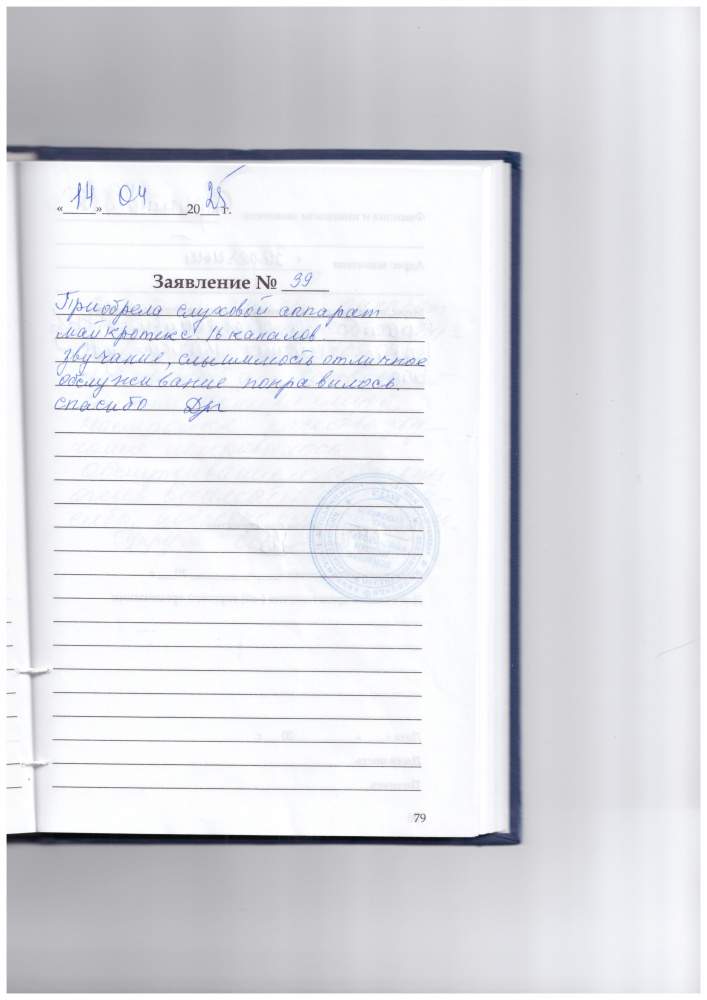 «14» 04 2025 г.
Заявление № 39
Приобрела слуховой аппарат
майкротекс 16 каналов.
звучание, слышимость отличное
обслуживание понравилось.
спасибо
79